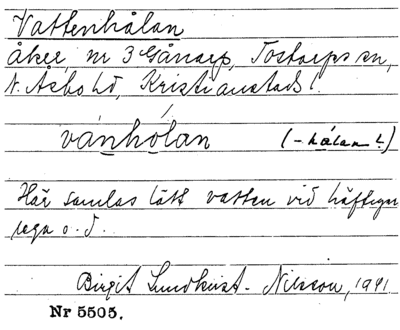 Vattenhålan
åker, nr 3 Gånarp, Tostarps sn,
N. Åsbo hd, Kristianstads l.
vánhólan (-hålan?)
Här samlas lätt vatten vid häftigare
regn o.d.
Birgit Lundkvist-Nilsson, 1941
Nr 5505.